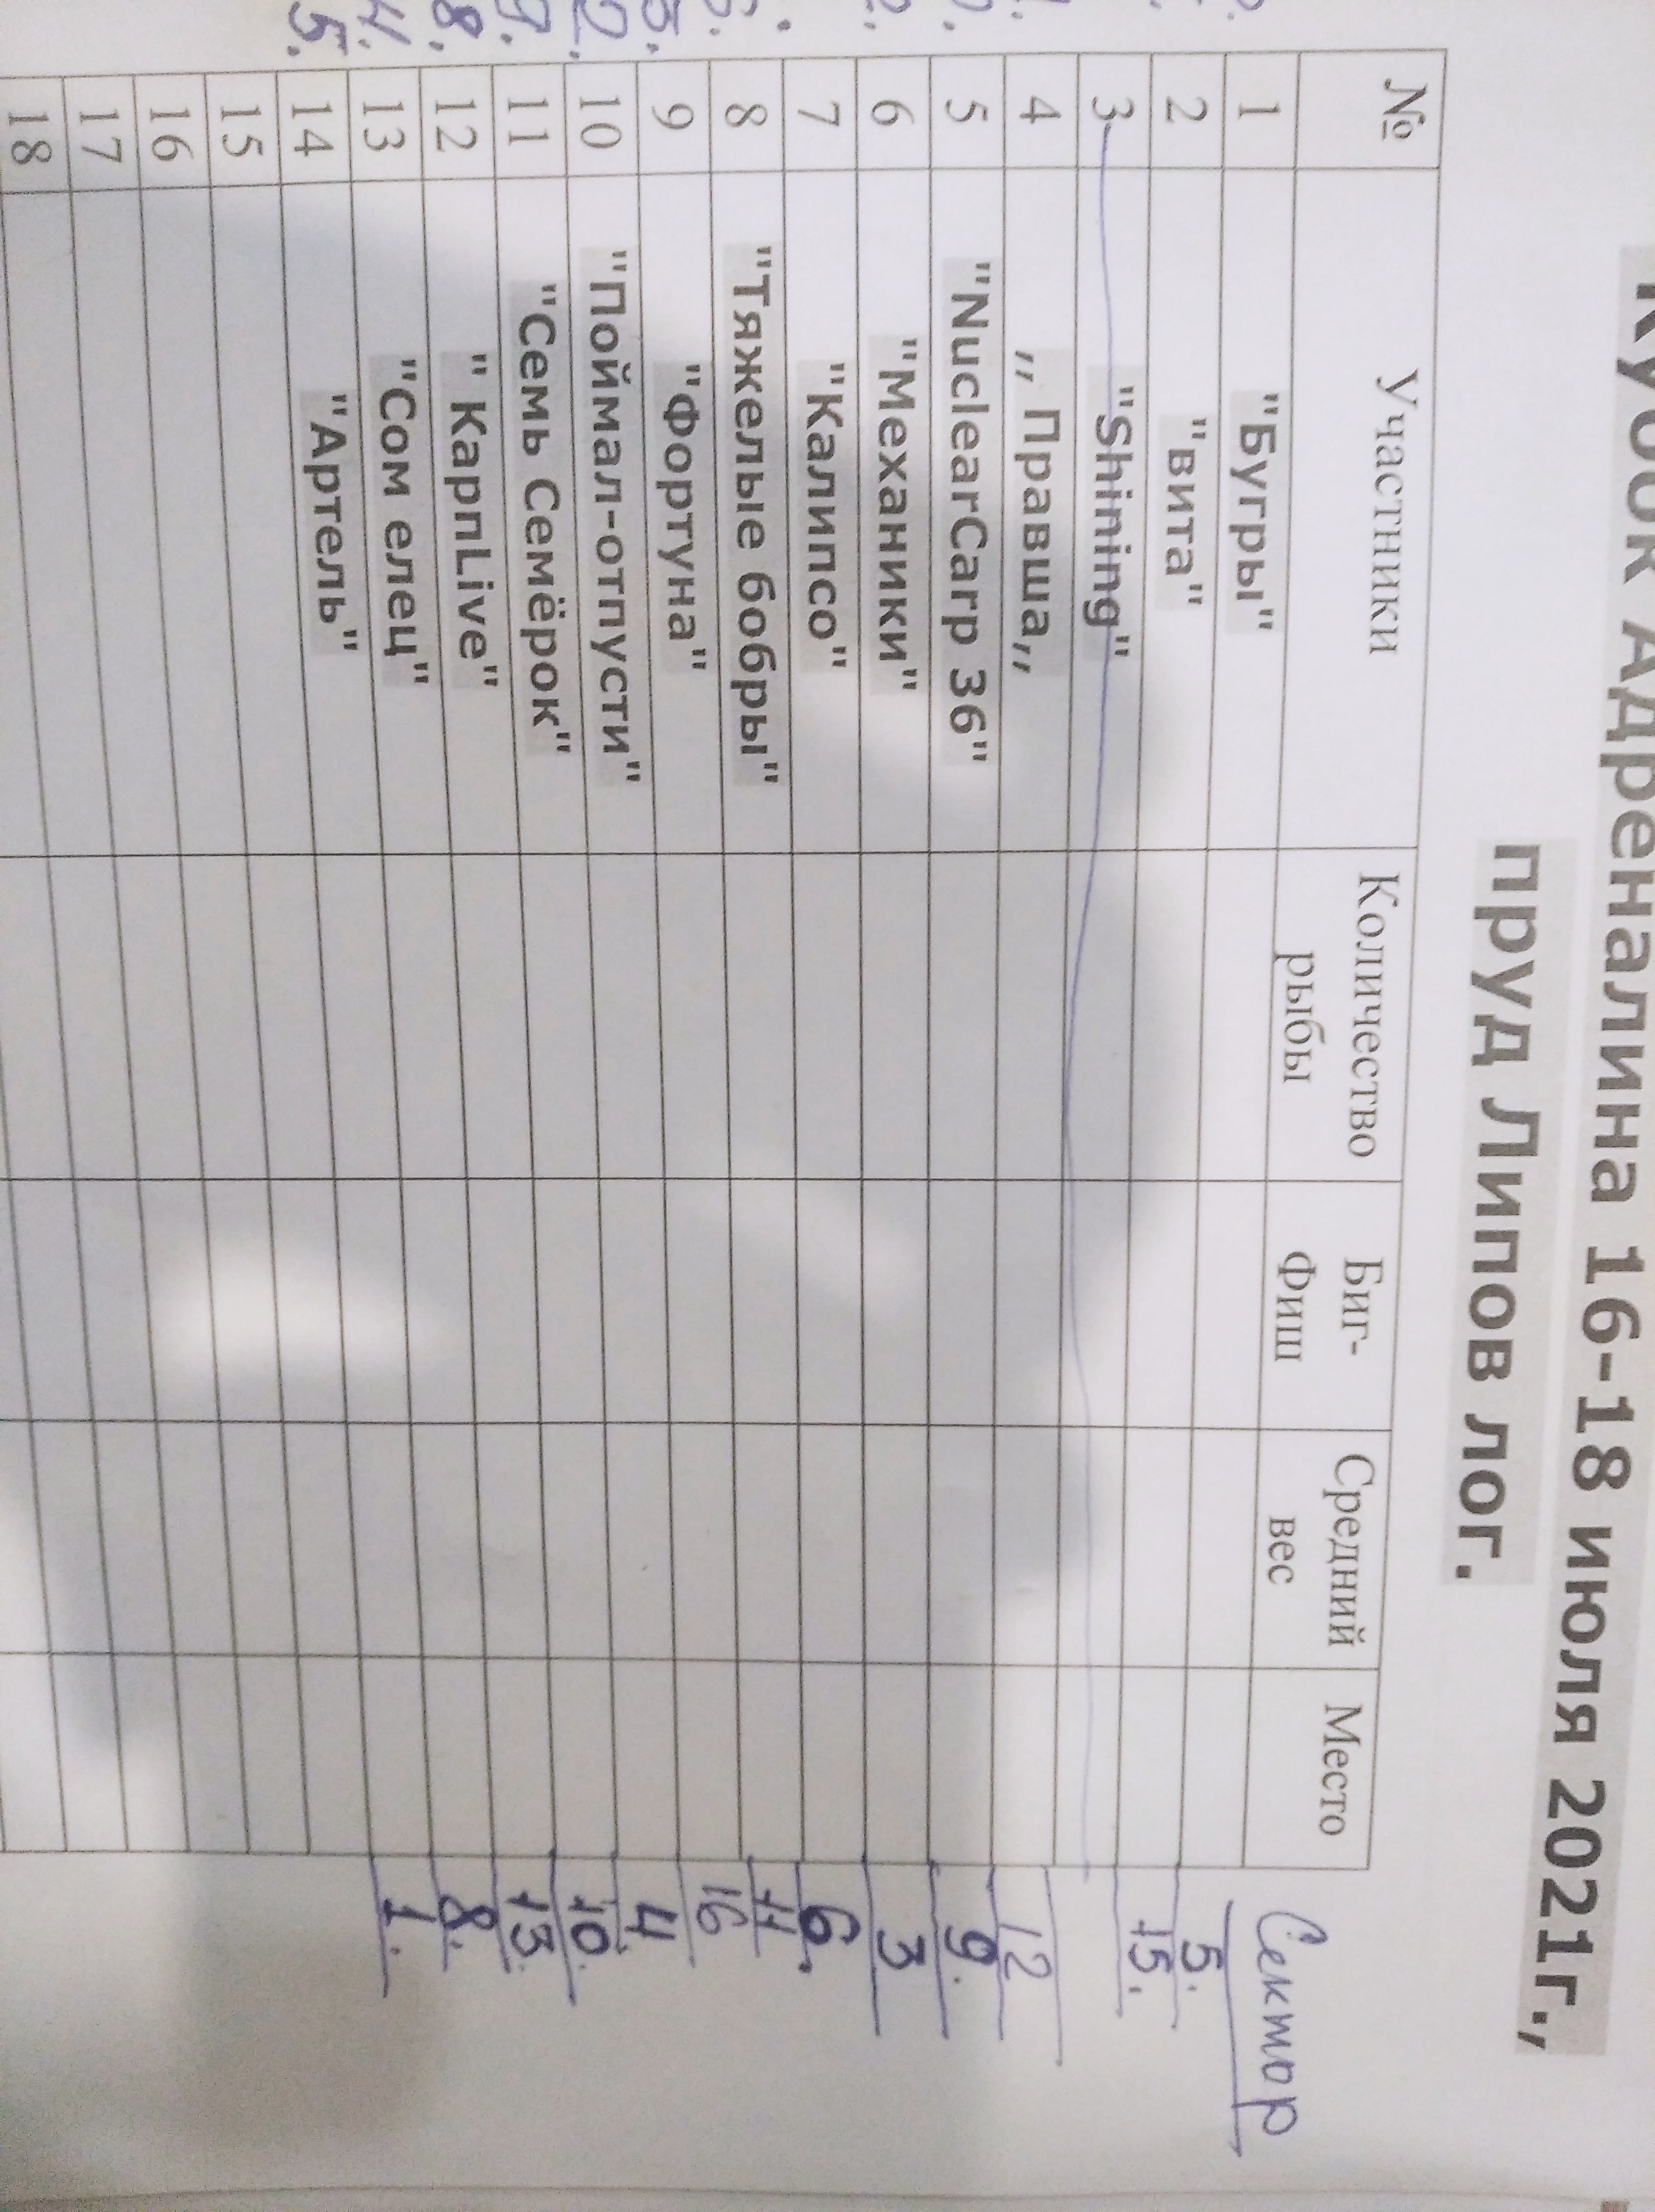 Кубок Адреналина 16-18 июля 2021г.,
пруд Липов лог.
№ Участники Количество рыбы Биг-Фиш Средний вес Место Сектор
1 "Бугры" 5.
2 "вита" 15.
3 "Shining"
4 ,, Правша,, 12
5 "NuclearCarp 36" 9.
6 "Механики" 3
7 "Калипсо" 6.
8 "Тяжелые бобры" 11
9 "Фортуна" 16
2. 10 "Поймал-отпусти" 4
11 "Семь Семёрок" 10.
8. 12 " КарпLive" 13.
4. 13 "Сом елец" 8.
5. 14 "Артель" 1.
15
16
17
18